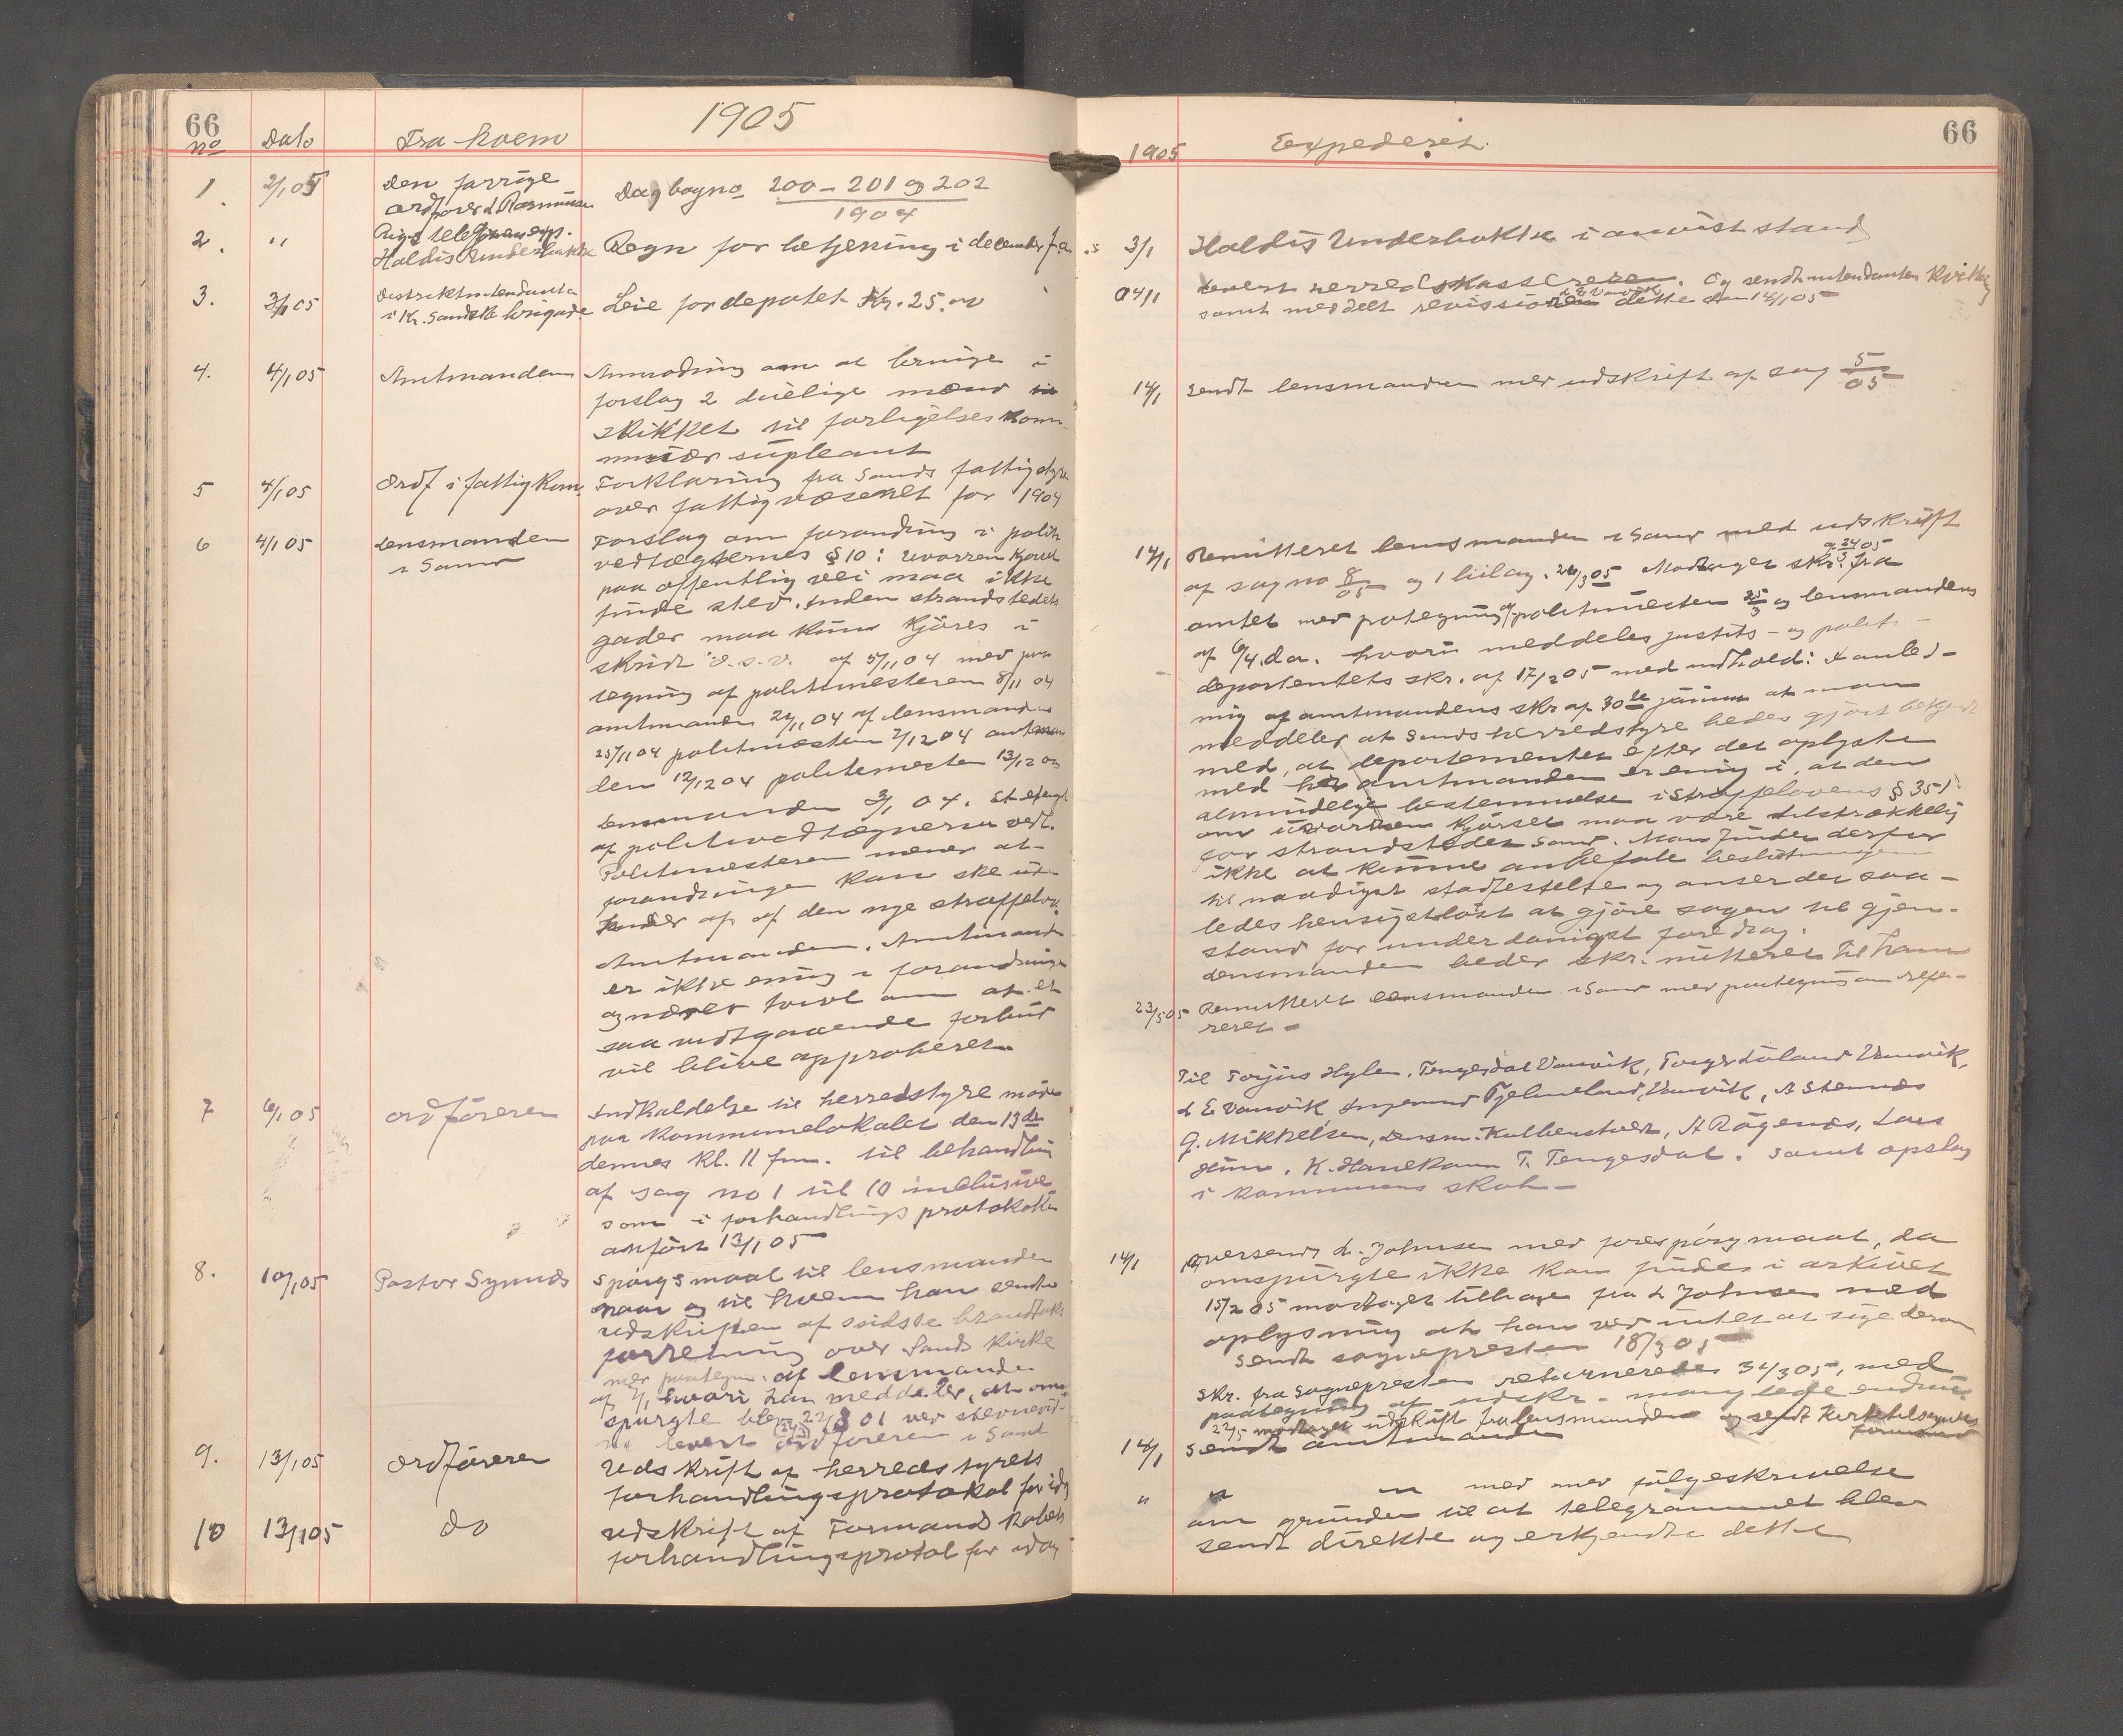 66
1905
no Dato Fra hvem
1. 2/1 05 Den forrige Dagbog no 200 – 201 og 202
ordfører L Rasmussen 1904
2. " Rigstelefonexp. Regn for betjening i december f.a.
Haldis Underbakke
3. 3/1 05 Distriktsintendanten Leie for depotet Kr. 25.00
i Kr. Sandske brigade
4. 4/1 05 Amtmanden Anmodning om at bringe i
forslag 2 duelige mænd
skikket til forligelseskom-
missær supleant
5 4/1 05 Ordf i fattigkom. Forklaring fra Sands fattigstyre
over fattigvæsenet for 1904
6 4/1 05 Lensmanden Forslag om forandring i politi
i Sand vedtægternes § 10: Uvorren kjørsel
paa offentlig vei maa ikke
finde sted. Inden strandstedets
gader maa kun kjøres i
skridt o.s.v. af 5/11 04 med paa
tegning af politimesteren 8/11 04
amtmanden 21/11 04 af lensmanden
25/11 04 politmesteren 7/12 04 amtman
den 12/12 04 politimesteren 13/12 04
Lensmanden 3/1 04. Et expl
af politivedtægterne vedl.
Politimesteren mener at
forandringen kan ske
af den nye straffelov.
Amtmanden. Amtmanden
er ikke enig i forandringen
og nærer tvivl om at et
saa vidtgaaende forbud
vil blive approberet
7 6/1 05 Ordføreren Indkaldelse til herredstyre møde
paa kommunelokalet den 13de
dennes kl. 11 fm. til behandling
af sag no 1 til 10 inclusive
som i forhandlings protokollen
anført 13/1 05
8. 10/1 05 Pastor Synnes Spørgsmaal til lensmanden
naar og til hvem han sendte
udskriften af sidste brandtakst
forretning over Sands kirke
med paategn. af lensmanden
af hvori han meddeler, at om-
spurgte blev 22/3 01 ved stevnevid-
ne levert ordføreren i Sand
9. 13/1 05 Ordføreren Udskrift af herredstyrets
forhandlingsprotokol for idag
10 13/1 05 do Udskrift af Formandskabets
forhandlingsprotol for idag
66
1905 Expederet.
3/1 Haldis Underbakke i anvist stand
14/1 Levert herredskasserer. Og sendt intendanten kvittering
samt meddelt revissionen dette den 14/1 05
14/1 Sendt lensmanden med udskrift af sag 5/05
14/1 Remitteret lensmanden i Sand med udskrift
af sag no 8/05 og 1 bilag. 24/3 05 Modtaget skr. fra
amtet med potegning af politimesteren 25/3 og lensmandens
af 6/4 d.a. hvori meddeles justits- og politi-
departentets skr. af 17/2 05 med indhold: I anled-
ning af amtmandens skr af 30te januar at man
meddeler at Sands herredstyre bedes gjort bekjendt
med, at departementet efter det oplyste
med amtmanden er enig i, at den
almindelige bestemmelse i straffelovens § 351
om uvorren kjørsel maa være tilstrækkelig
for strandstedet Sand. Man finder derfor
ikke at kunne anbefale beslutningen
til naadigst stadfestelse og anser det saa-
ledes hensigtsløst at gjøre sagen til gjen-
stand for underdanigst foredrag.
Lensmanden beder skr. mitteret til ham
23/5 05 Remitteret lensmanden i Sand med paategning om refe-
reret –
Til Torjus Hylen, Tengesdal Vanvik, Torger Døland Vanvik,
L E Vanvik Fjelmeland Vanvik, A Stennes
G. Mikkelsen, Lensm. Kolbenstvedt, A Røgenes, Lars
K. Handeland T. Tengesdal. Samt opslag
i kommunens
14/1 Oversendt L. Johnsen med forespørgmaal, da
omspurgte ikke kan findes i arkivet
15/2 05 modtaget tilbage fra L Johnsen med
oplysning at han ved intet at sige derom
sendt sognepresten 18/3 05
Skr. fra sognepresten returneredes 31/3 05, med
paategning af udskr. manglede endnu.
22/5 modtaget udskrift fra lensmanden og sendt kirketilsynets
formand
14/1 Sendt amtmanden
" " " med følgeskrivelse
om grunden til at telegrammet blev
sendt direkte og erkjendte dette